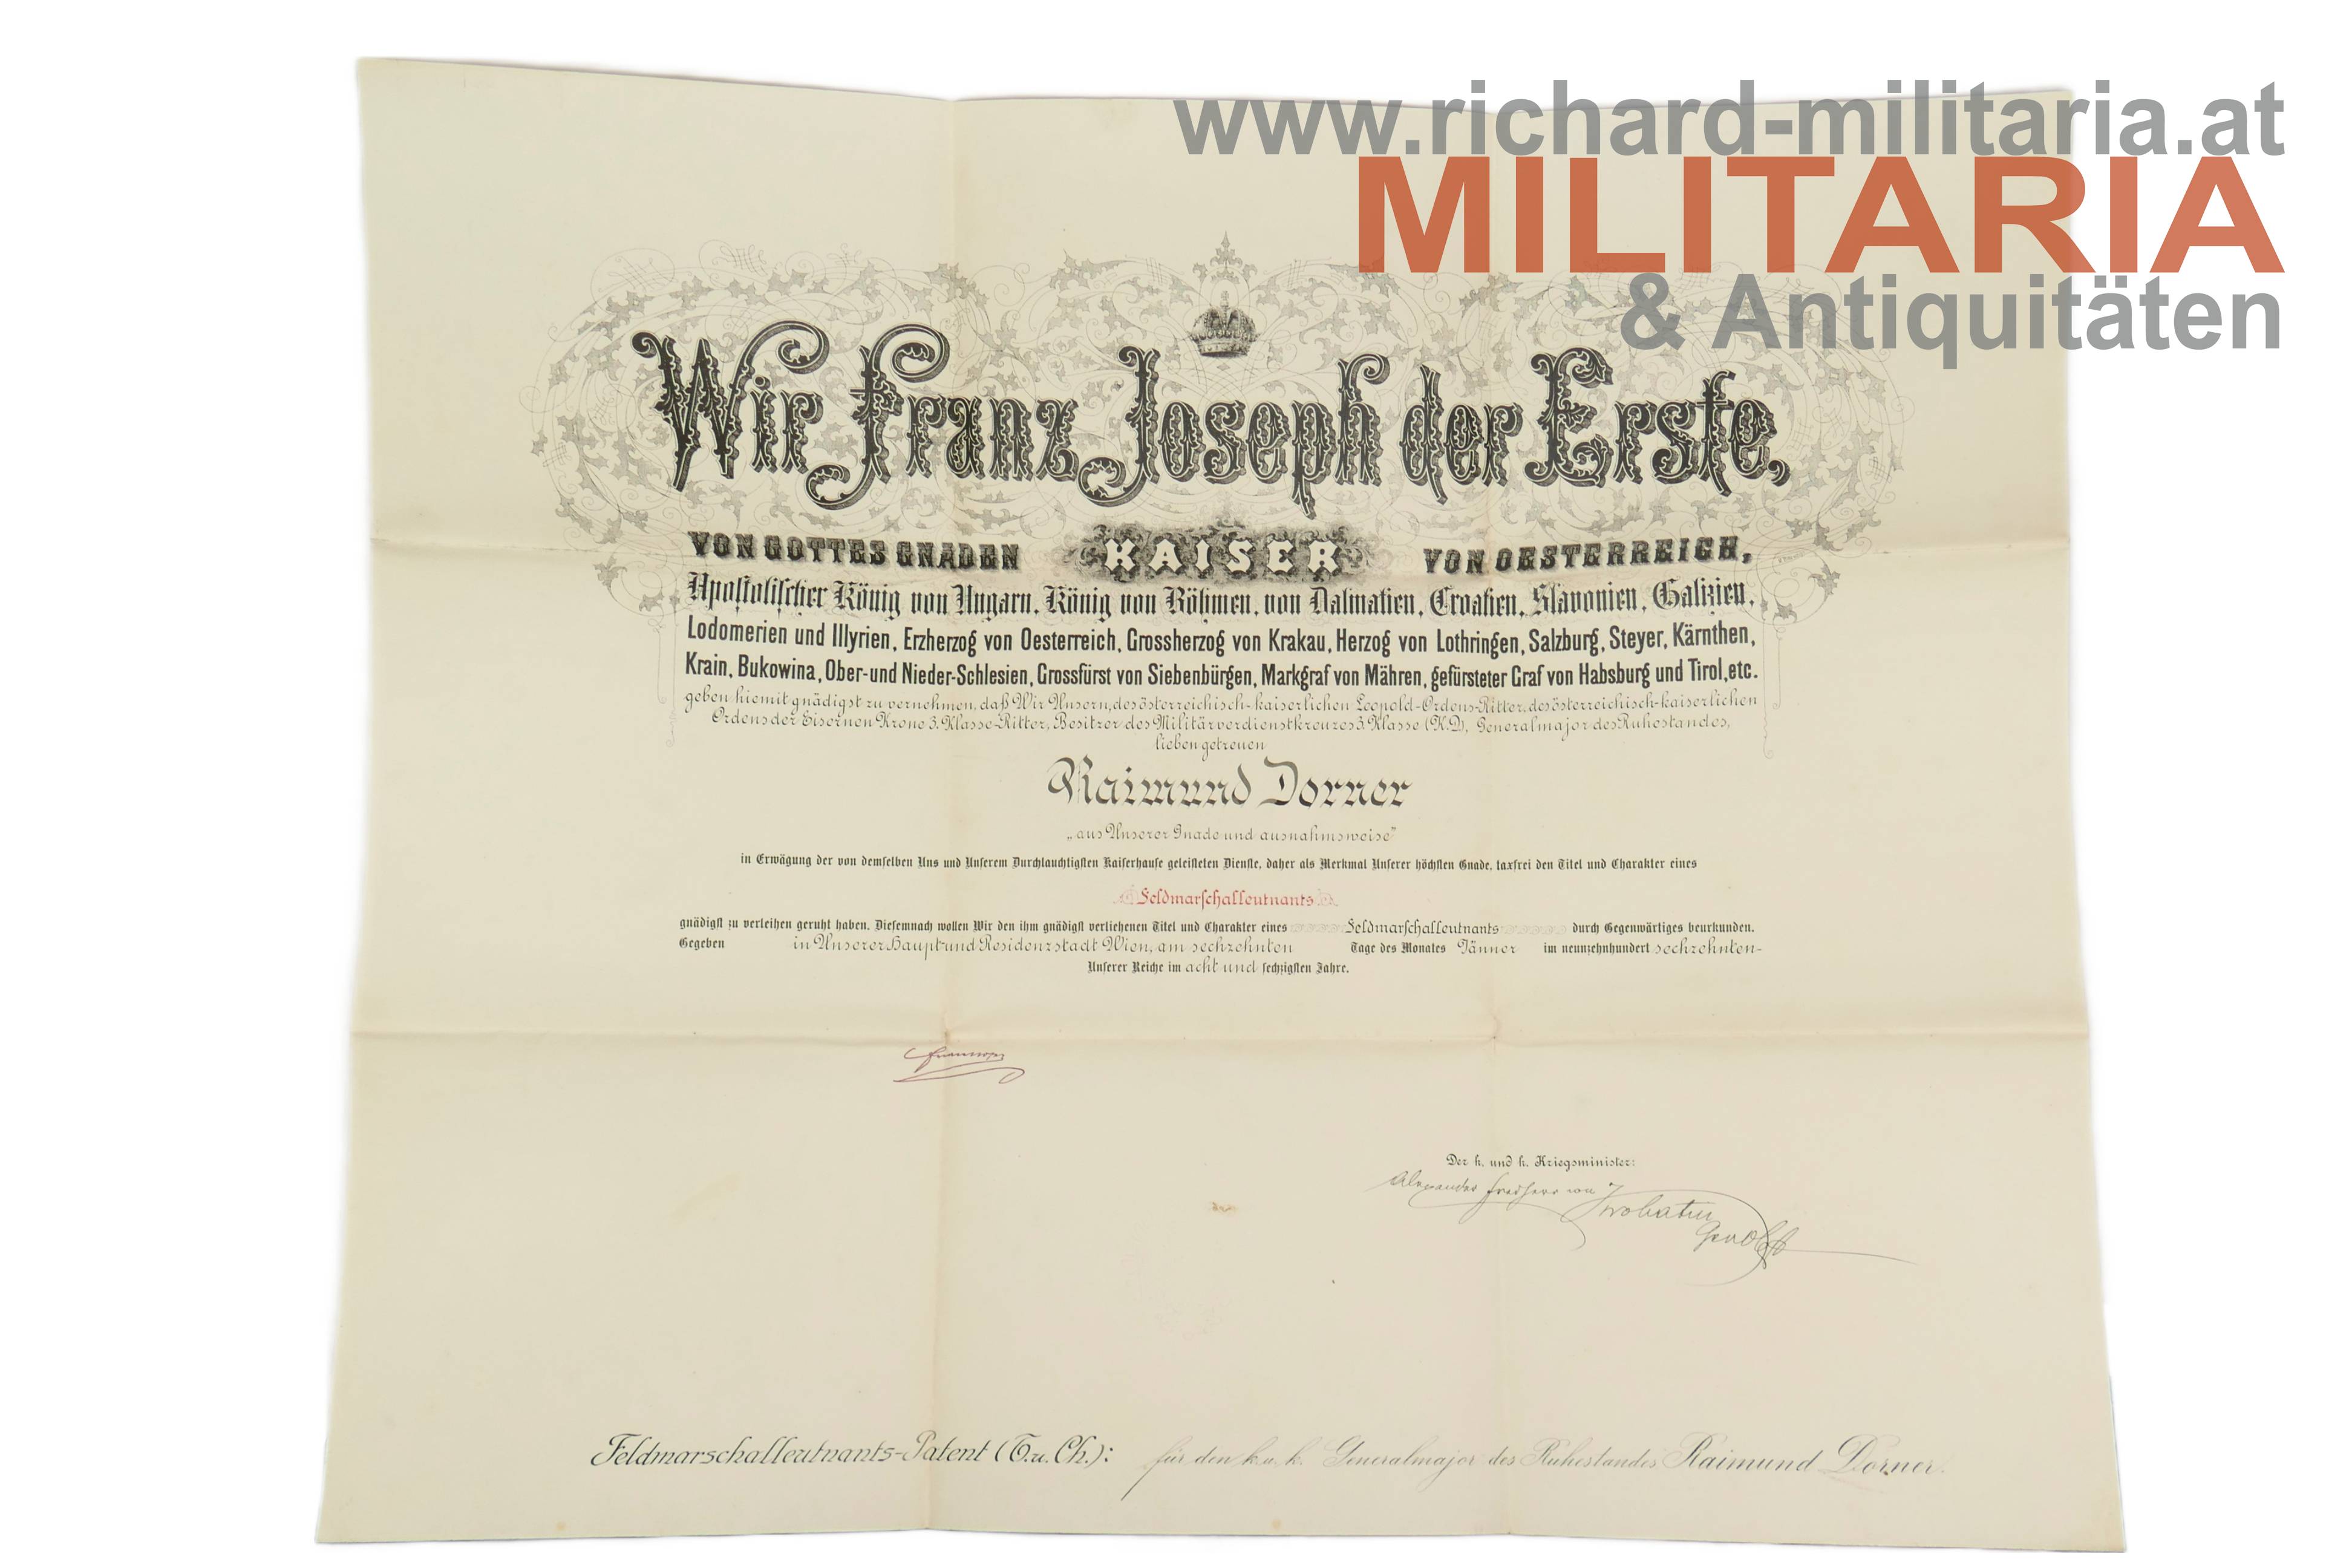 www.richard-militaria.at
MILITARIA
& Antiquitäten
Wir Franz Joseph der Erste,
VON GOTTES GNADEN KAISER VON OESTERREICH,
Apostolischer König von Ungarn, König von Böhmen, von Dalmatien, Croatien, Slavonien, Galizien,
Lodomerien und Illyrien, Erzherzog von Oesterreich, Grossherzog von Krakau, Herzog von Lothringen, Salzburg, Steyer, Kärnthen,
Krain, Bukowina, Ober-und Nieder-Schlesien, Grossfürst von Siebenbürgen, Markgraf von Mähren, gefürsteter Graf von Habsburg und Tirol, etc.
geben hiemit gnädigst zu vernehmen, daß Wir Unsern, des österreichisch-kaiserlichen Leopold-Ordens-Ritter, des österreichisch-kaiserlichen
Ordens der Eisernen Krone 3. Klasse-Ritter, Besitzer des Militärverdienstkreuzes 3. Klasse (K.D.), Generalmajor des Ruhestandes,
lieben getreuen
Raimund Dorner
„aus Unserer Gnade und ausnahmsweise"
in Erwägung der von demselben Uns und Unserem Durchlauchtigsten Kaiserhause geleisteten Dienste, daher als Merkmal Unserer höchsten Gnade, taxfrei den Titel und Charakter eines
Feldmarschalleutnants
gnädigst zu verleihen geruht haben. Diesemnach wollen Wir den ihm gnädigst verliehenen Titel und Charakter eines Feldmarschalleutnants durch Gegenwärtiges beurkunden.
Gegeben in Unserer Haupt- und Residenzstadt Wien, am sechzehnten Tage des Monates Jänner im neunzehnhundert sechzehnten-
Unserer Reiche im acht und sechzigsten Jahre.
Der k. und k. Kriegsminister:
Alexander Freiherr von Krobatin
GenObst
Feldmarschalleutnants-Patent (T. u. Ch.): für den k. u. k. Generalmajor des Ruhestandes Raimund Dorner.